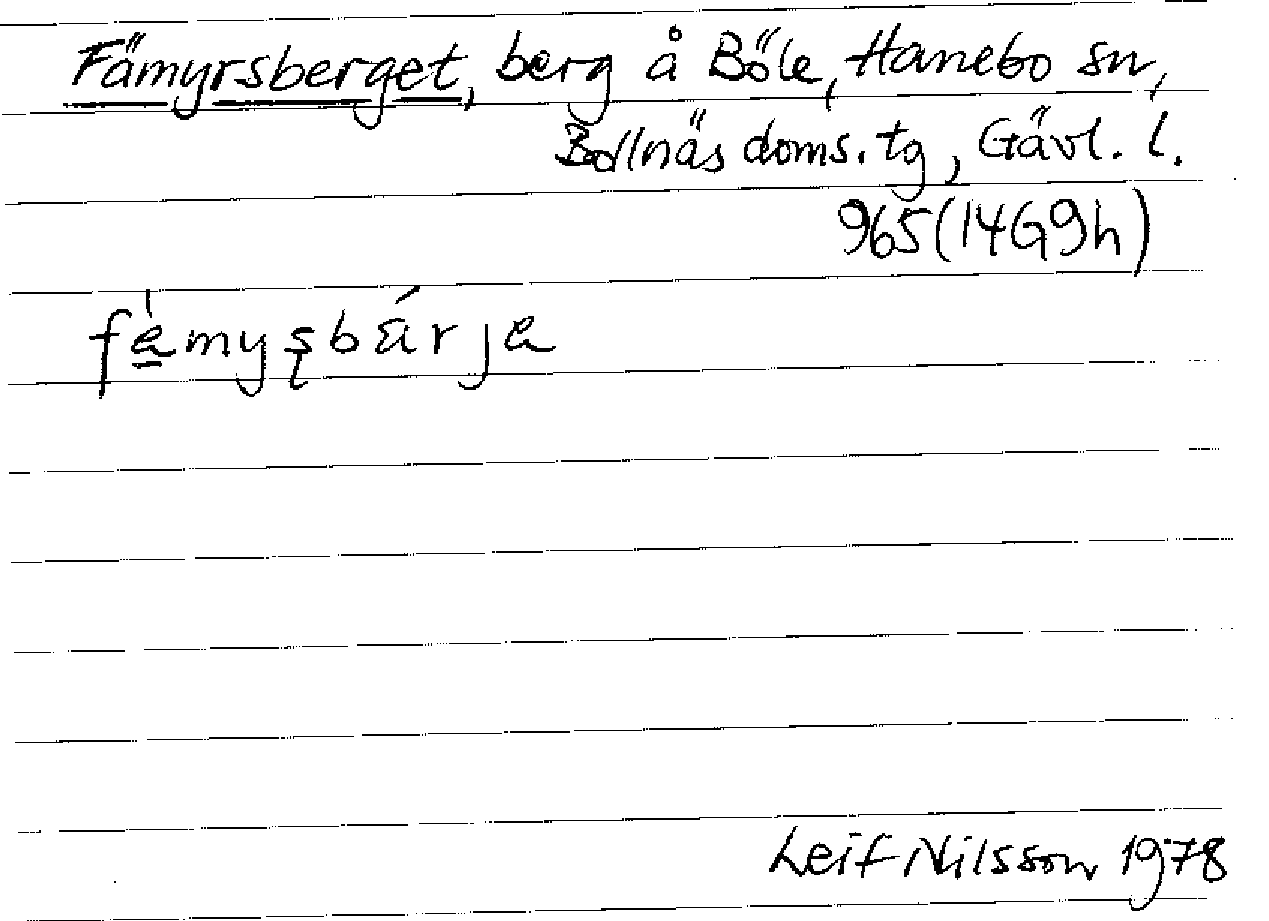 Fämyrsberget, berg å Böle, Hanebo sn,
Bollnäs doms. tg, Gävl. l.
965 (14G9h)
Leif Nilsson 1978